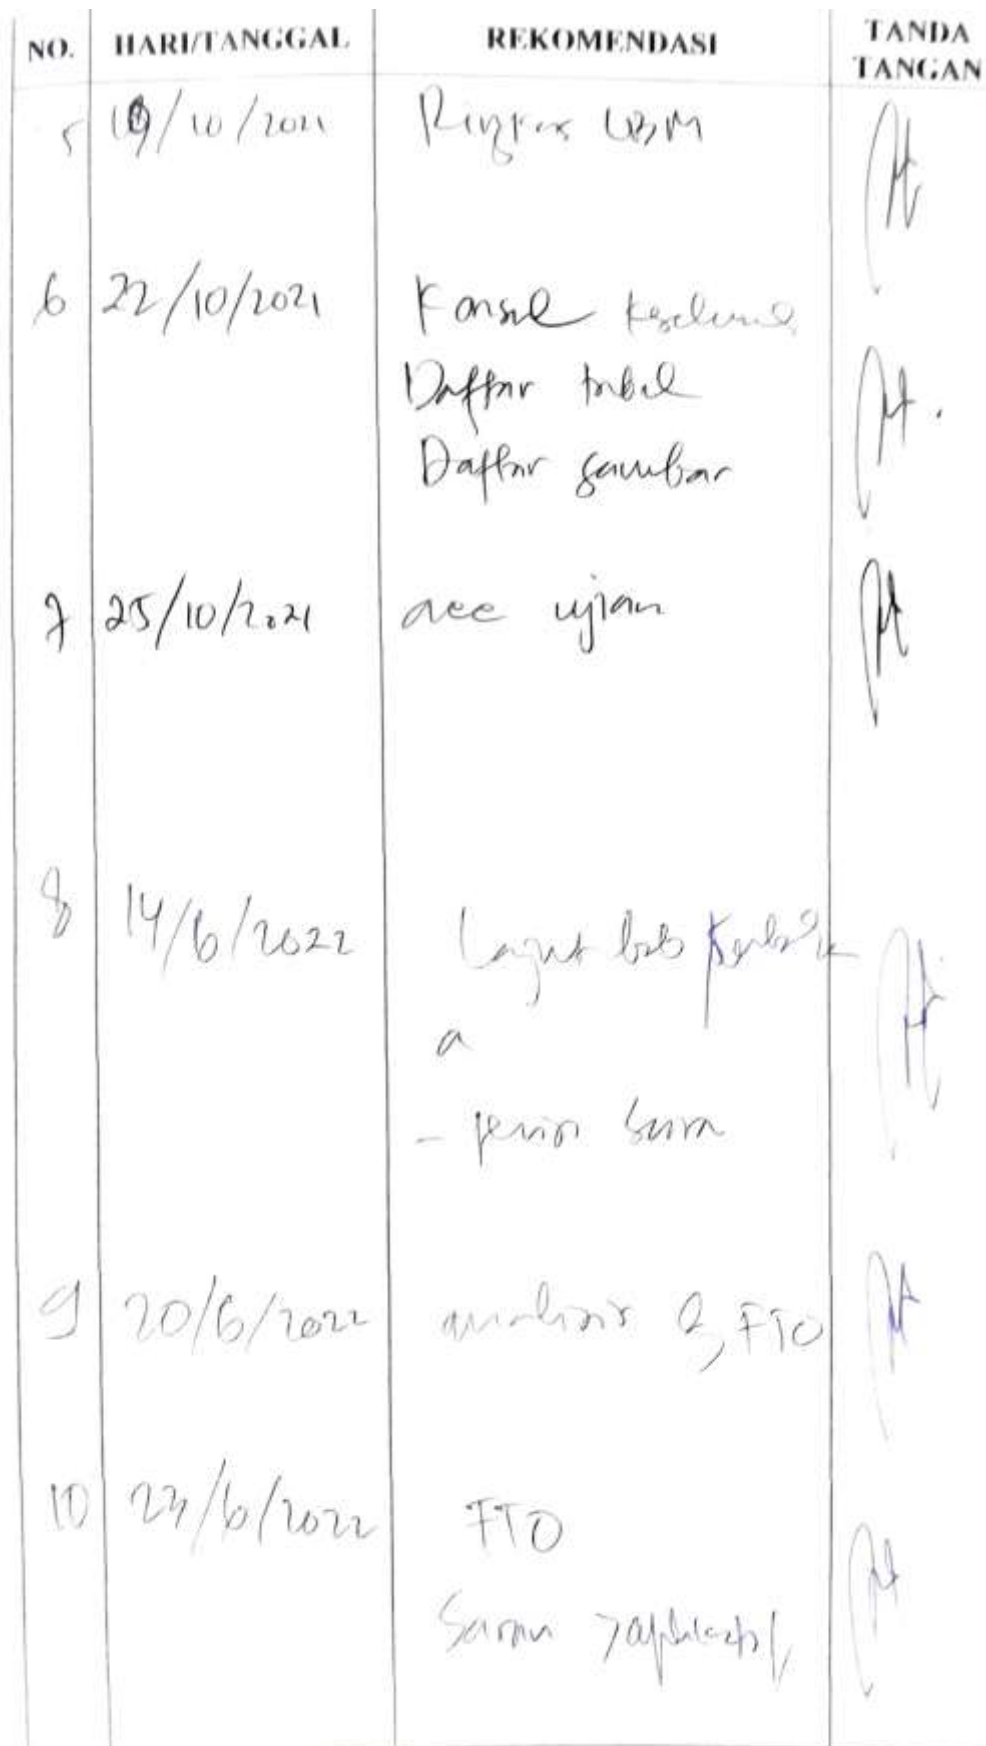 NO. HARI/TANGGAL REKOMENDASI TANDA TANGAN
5 19/10/2021 Ringkas LBM
6 22/10/2021 Konsul
Daftar tabel
Daftar gambar
7 25/10/2021 acc ujian
8 14/6/2022 Lanjut bab
a
-
9 20/6/2022 analisis FTO
10 /6/2022 FTO
Saran